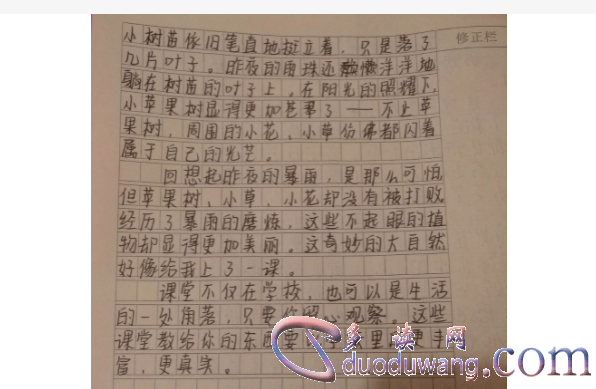 小树苗依旧笔直地挺立着，只是落了
修正栏
几片叶子。昨夜的雨珠还懒洋洋地
躺在树苗的叶子上。在阳光的照耀下，
小苹果树显得更加苍翠了——不止苹
果树，周围的小花、小草仿佛都闪着
属于自己的光芒。
回想起昨夜的暴雨，是那么可怕，
但苹果树、小草、小花却没有被打败，
经历了暴雨的磨炼，这些不起眼的植
物却显得更加美丽。这奇妙的大自然
好像给我上了一课。
课堂不仅在学校，也可以是生活
的一处角落，只要你留心观察。这些
课堂教给你的东西要 里 更丰
富，更真实。
多读网
duoduwang.com